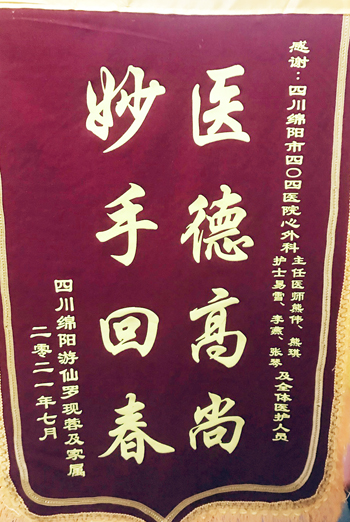 感谢：四川绵阳市四〇四医院心外科
主任医师熊伟、熊琪
护士易雪、李燕、张琴
及全体医护人员
医德高尚
妙手回春
四川绵阳游仙罗现蓉及家属
二零二一年七月